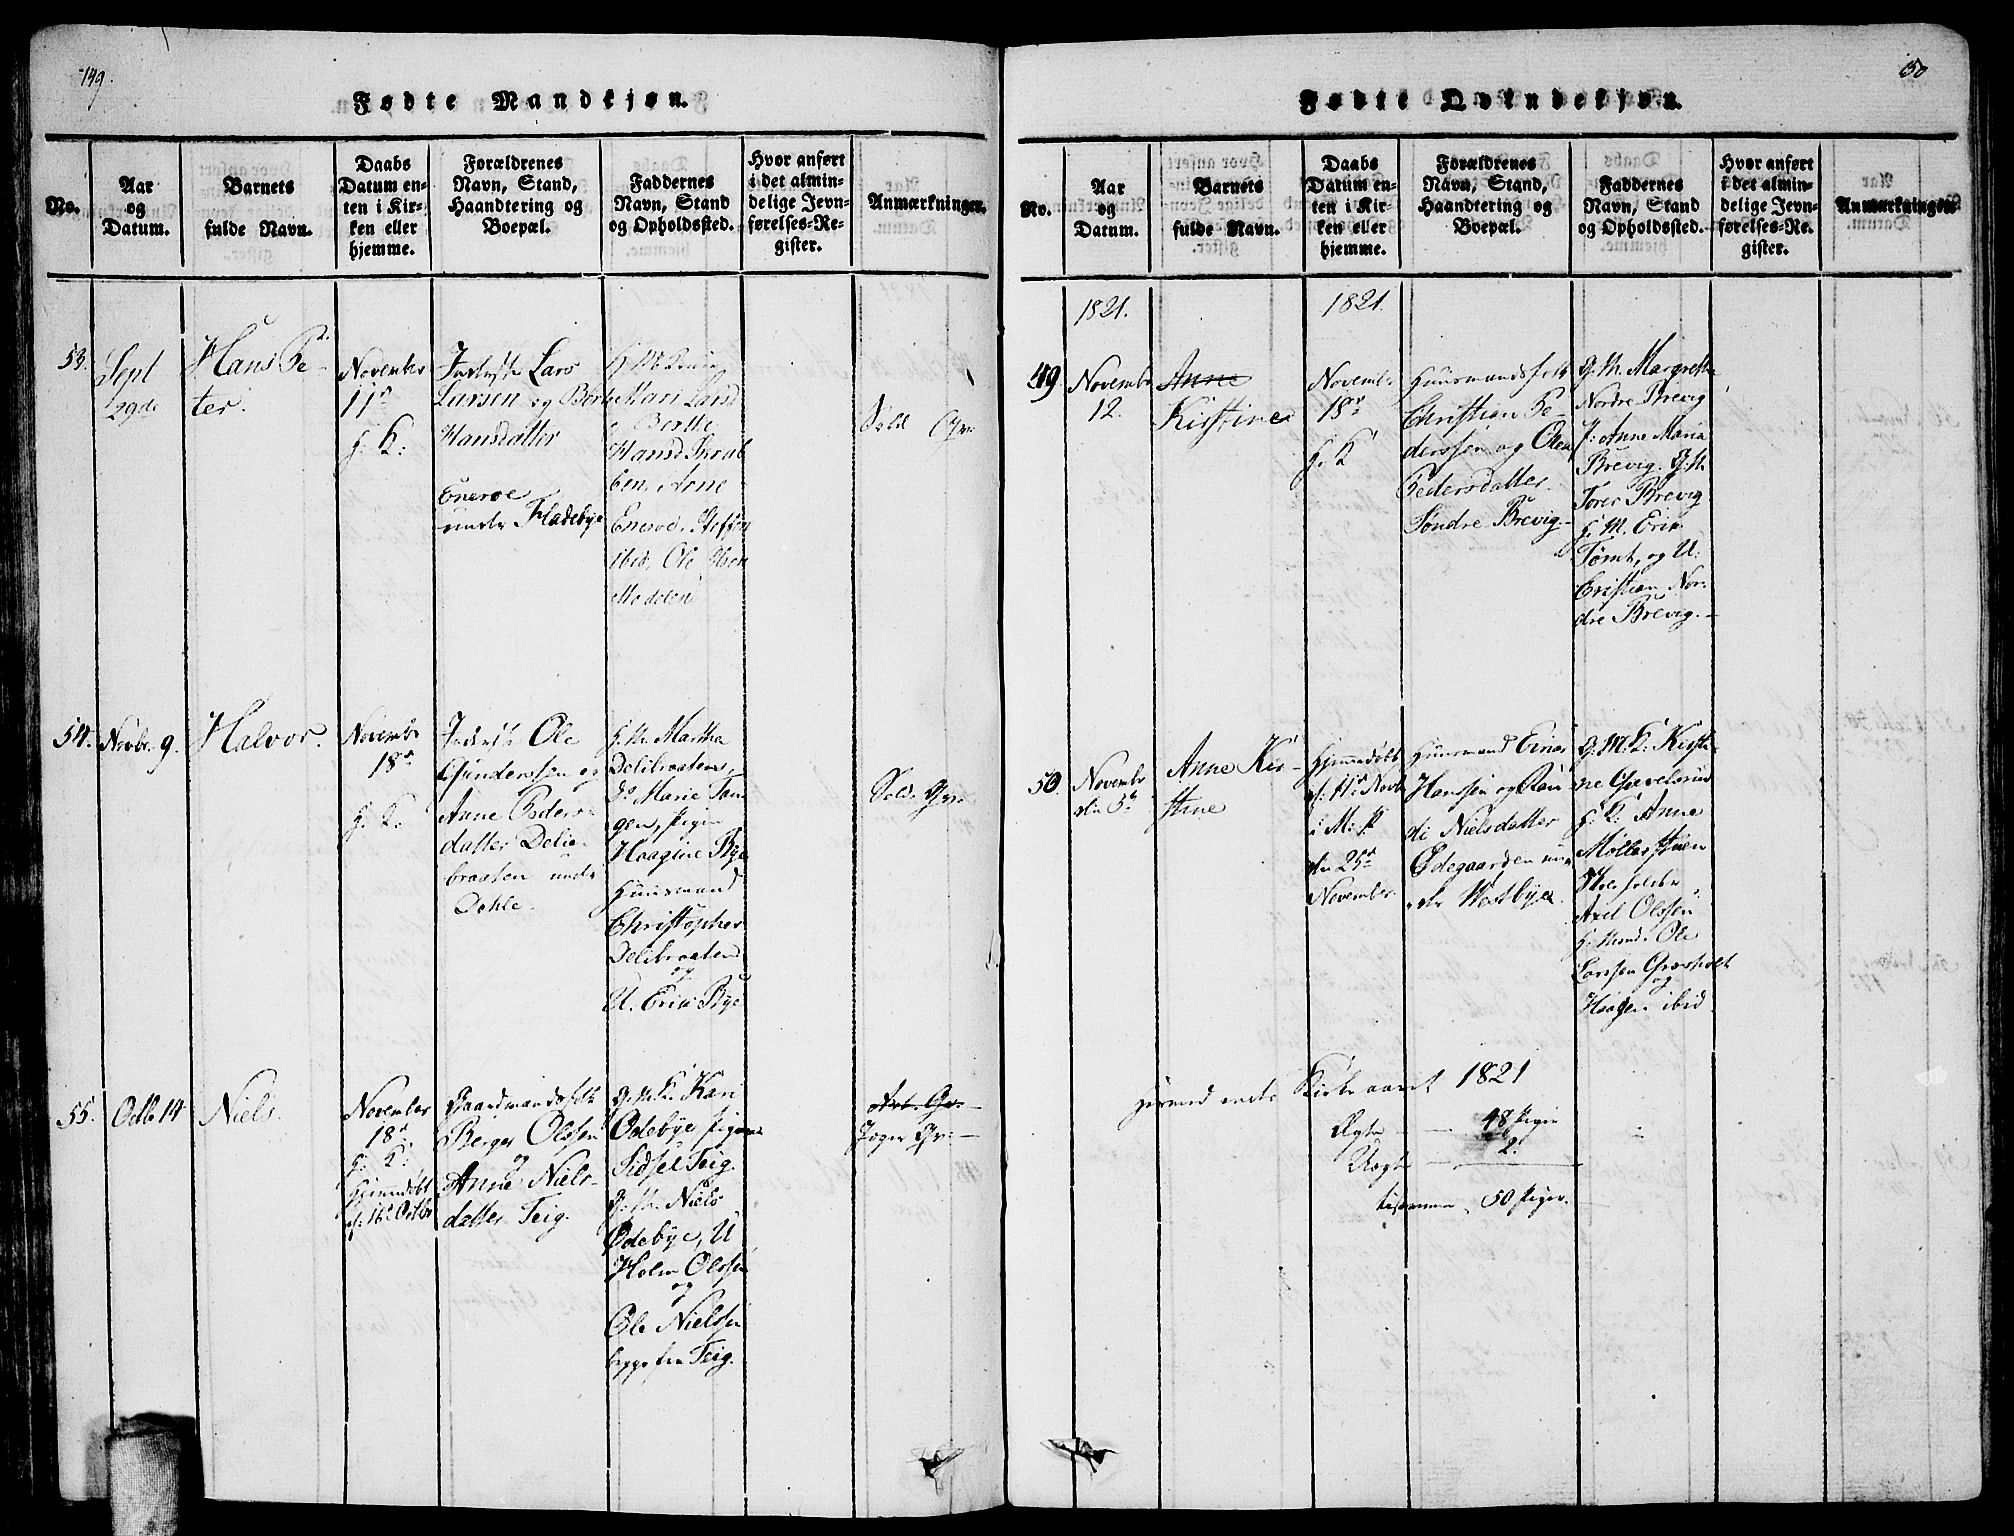 149.
Fødte Mandkjøn.
No.
Aar
og
Datum.
Barnets
fulde Navn.
Daabs
Datum en-
ten i Kir-
ken eller
hjemme.
Forældrenes
Navn, Stand,
Haandtering og
Boepæl.
Faddernes
Navn, Stand
og Opholdssted.
Hvor anført
i det almin-
delige Jevn-
førelses-Re-
gister.
Anmærkninger.
53.
Sept
29de
Hans Pe-
ter.
November
11te
H. K:
Lars
Larsen og Berthe
Hansdatter
Eneroe
under Fladebye
Mari
Berthe
Hansd
ben, Arne
Eneroe,
ibid, Ole
54.
Novbr 9.
Halvor.
November
18de
H. K:
Inderst Ole
Gunderssen og
Anne Peders-
datter Delie-
braaten under
Dehle.
G. K. Martha
Deliebraaten,
Do Marie
gen, Pigen
Haagine Bye
Huusmand
Christopher
Deliebraaten
og
U. Erik Bye
55.
Octb 14
Niels.
November
18de
H. K:
hjemdøbt
d: 16de Octbr
Gaardmandsfolk
Berger Olssen
og
Anne Niels-
datter Teig.
G. M. K. Kari
Ødebye Pigerne
Sidsel Teig.
G. M. Niels
Ødebye, U
Holm Olssen
og
Ole Nielssen
begge fra Teig.
150
Fødte Qvindekjøn.
No.
Aar
og
Datum.
Barnets
fulde Navn.
Daabs
Datum en-
ten i Kir-
ken eller
hjemme.
Forældrenes
Navn, Stand,
Haandtering og
Boepæl.
Faddernes
Navn, Stand
og Opholdssted.
Hvor anført
i det almin-
delige Jevn-
førelses-Re-
gister.
Anmærkninger.
1821.
1821.
49.
Novembr
12.
Anne
Kirstine
November
18de
H. K
Huusmandsfolk
Christian Pe-
derssen og Olea
Pedersdatter
Søndre Brevig.
G. K. Margrethe
Nordre Brevig
P: Anne Maria
Brevig. G. M.
Torer Brevig
H. M. Erik
Tømt, og U:
Cristian Nor-
dre Brevig.
50.
Novembr
den 5te
Anne Kir-
stine
Hjemmedøbt
d: 11te Novbr
i M: K
den 25de
November
Huusmand Einar
Hanssen og Ran-
di Nielsdatter
Ødegaarden un-
der Westbye.
G. M. K: Kirsti-
ne
H. K: Anne
Møllerstuen
Axel Olssen
H. Mand. Ole
Larssen Græsholt
og
Haagen ibid
Kirke aaret 1821
Ægte 48 Piger
Uægte 2.
tilsammen 50 Piger.